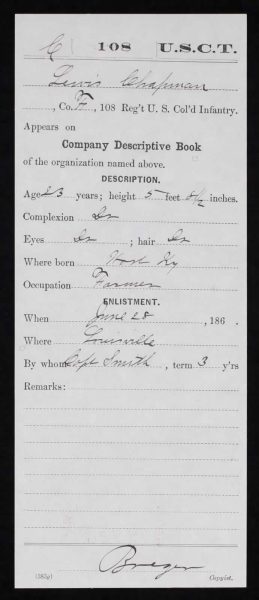 C 108 U.S.C.T.
Lewis Chapman
, Co. F, 108 Reg't U. S. Col'd Infantry.
Appears on
Company Descriptive Book
of the organization named above.
DESCRIPTION.
Age 23 years; height 5 feet 8½ inches.
Complexion Dr
Eyes Dr ; hair Dr
Where born Ky
Occupation Farmer
ENLISTMENT.
When June 28 , 186 .
Where Louisville
By whom Capt Smith , term 3 y'rs
Remarks:
(383g) Copyist.